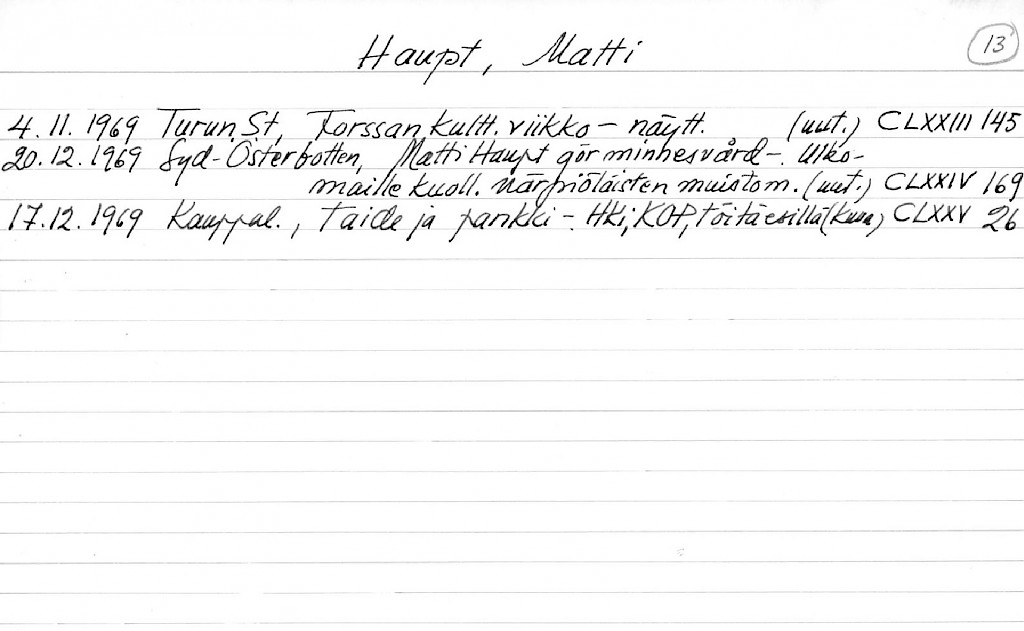 Haupt, Matti 13
4.11.1969 Turun St, Forssan kultt. viikko - näytt. (uut.) CLXXIII 145
20.12.1969 Syd-Österbotten, Matti Haupt gör minnesvård -. Ulko-
maille kuoll. närpiöläisten muistom. (uut.) CLXXIV 169
17.12.1969 Kauppal., Taide ja pankki - Hki, KOP, töitä esillä (kuva) CLXXV 26